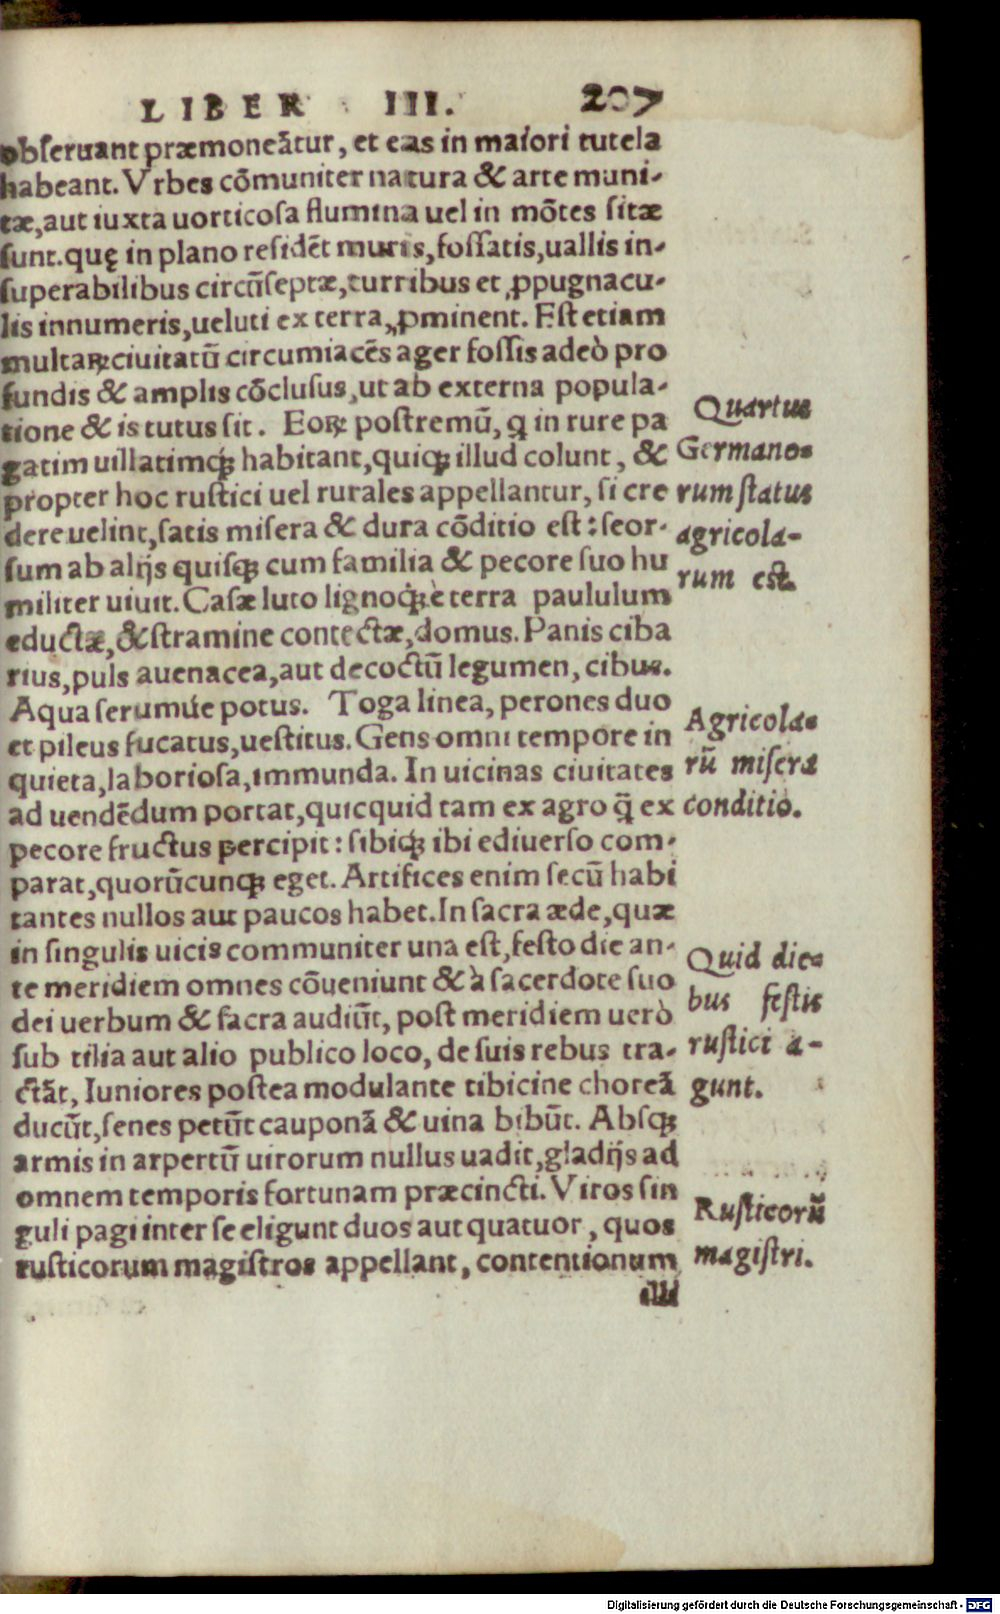 LIBER III. 207
obſeruant præmoneãtur, et eas in maiori tutela
habeant. Vrbes cõmuniter natura & arte muni-
tæ, aut iuxta uorticoſa flumina uel in mõtes ſitæ
ſunt. quę in plano reſidẽt muris, foſſatis, uallis in-
ſuperabilibus circũſeptæ, turribus et ꝓpugnacu-
lis innumeris, ueluti ex terra, ꝓminent. Eſt etiam
multaꝝ ciuitatũ circumiacẽs ager foſſis adeò pro
fundis & amplis cõcluſus, ut ab externa popula-
tione & is tutus ſit. Eoꝝ poſtremũ, ꝗ in rure pa
gatim uillatimq́ꝫ habitant, quiqꝫ illud colunt, &
propter hoc ruſtici uel rurales appellantur, ſi cre
dere uelint, ſatis miſera & dura cõditio eſt: ſeor-
ſum ab alijs quiſqꝫ cum familia & pecore ſuo hu
militer uiuit. Caſæ luto lignoq́ꝫ è terra paululum
eductæ, & ſtramine contectæ, domus. Panis ciba
rius, puls auenacea, aut decoctũ legumen, cibus.
Aqua ſerumúe potus. Toga linea, perones duo
et pileus fucatus, ueſtitus. Gens omni tempore in
quieta, laborioſa, immunda. In uicinas ciuitates
ad uendẽdum portat, quicquid tam ex agro q̃ ex
pecore fructus percipit: ſibiq́ꝫ ibi ediuerſo com-
parat, quorũcunqꝫ eget. Artifices enim ſecũ habi
tantes nullos aut paucos habet. In ſacra æde, quæ
in ſingulis uicis communiter una eſt, feſto die an-
te meridiem omnes cõueniunt & à ſacerdote ſuo
dei uerbum & ſacra audiũt, poſt meridiem uerò
ſub tilia aut alio publico loco, de ſuis rebus tra-
ctãt, Iuniores poſtea modulante tibicine choreã
ducũt, ſenes petũt cauponã & uina bibũt. Abſqꝫ
armis in arpertũ uirorum nullus uadit, gladijs ad
omnem temporis fortunam præcincti. Viros ſin
guli pagi inter ſe eligunt duos aut quatuor, quos
ruſticorum magiſtros appellant, contentionum
illi
Quartus
Germano-
rum ſtatus
agricola-
rum eſt.
Agricola-
rũ miſera
conditio.
Quid die-
bus feſtis
ruſtici a-
gunt.
Ruſticorũ
magiſtri.
Digitalisierung gefördert durch die Deutsche Forschungsgemeinschaft - DFG